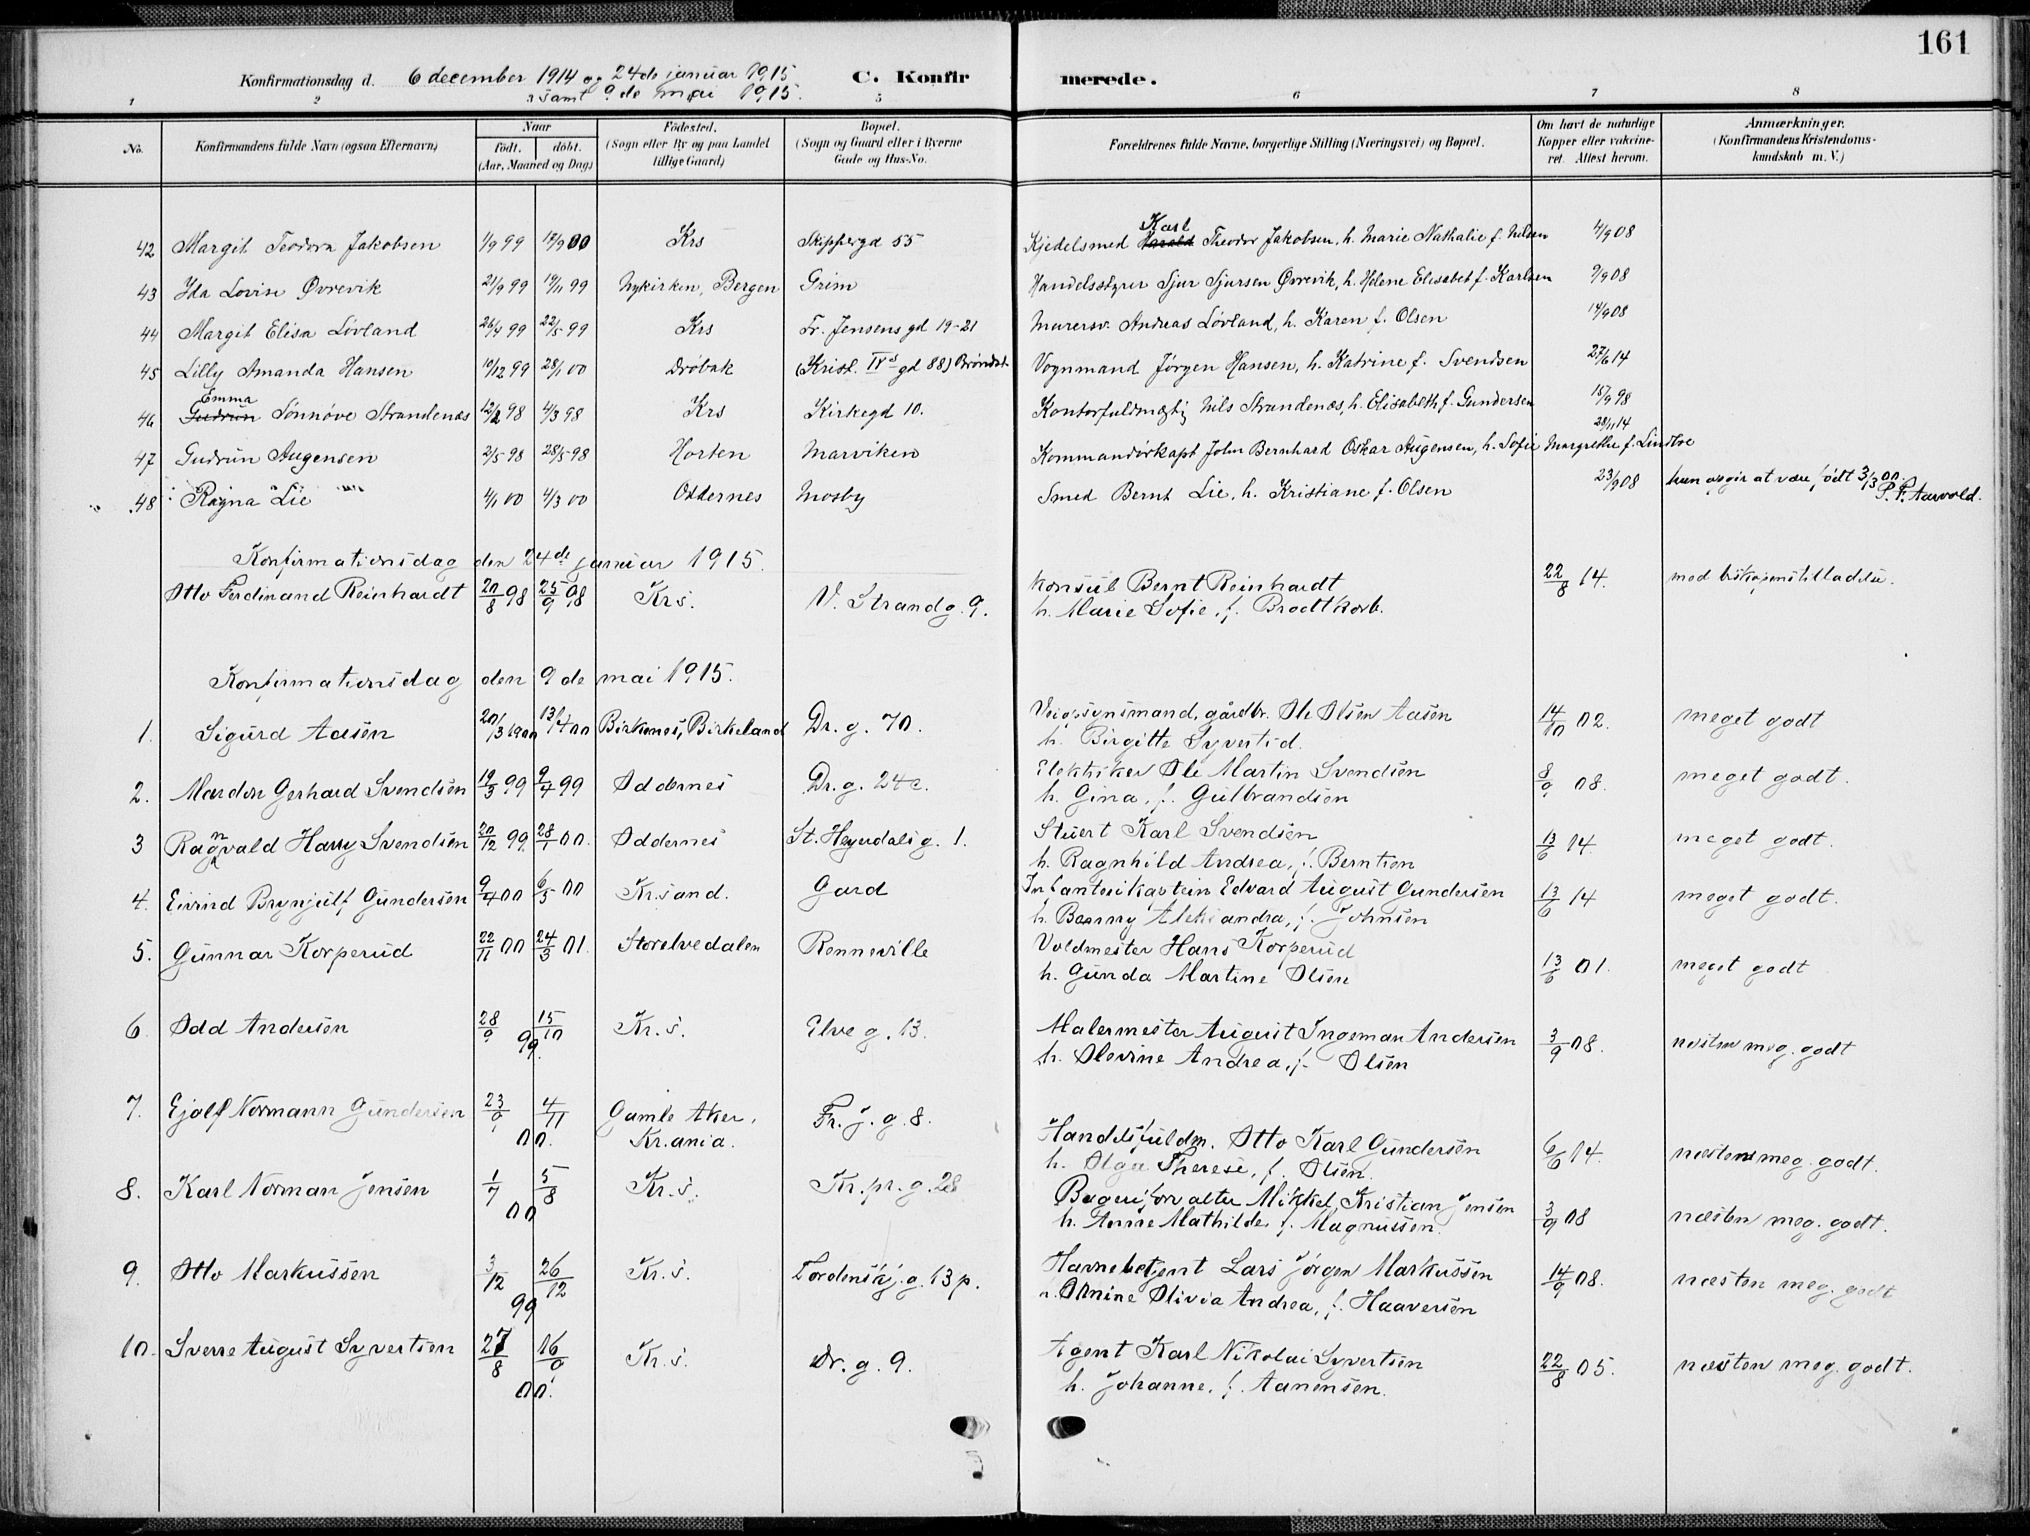 161
Konfirmationsdag d. 6 december 1914 og 24de januar 1915 C. Konfirmerede.
samt 9de mai 1915.
1 2 5 6 7 8
No. Konfirmandens fulde Navn (ogsaa Efternavn) Naar født. døbt. (Aar, Maaned og Dag) Fødested. (Sogn eller By og paa Landet tillige Gaard) Bopæl. (Sogn og Gaard eller i Byerne Gade og Hus-No. Forældrenes fulde Navne, borgerlige Stilling (Næringsvei) og Bopæl. Om havt de naturlige Kopper eller vakcineret. Attest herom. Anmærkninger. (Konfirmandens Kristendomskundskab m. V.)
42 Margit Teodora Jakobsen 1/9 99 17/9 00 Krs Skippergd 55 Kjedelsmed Harald Karl Theodor Jakobsen, h. Marie Nathalie f. Nilsen 4/9 08
43 Ida Lovise Øvrevik 21/9 99 19/11 99 Nykirken, Bergen Grim Handelsstyrer Sjur Sjursen Øvrevik, h. Helene Elisabet f. Karlsen 9/9 08
44 Margit Elisa Løvland 26/4 99 22/5 99 Krs Fr. Jensens gd 19-21 Murersv. Andreas Løvland, h. Karen f. Olsen 14/9 08
45 Lilly Amanda Hansen 10/12 99 28/1 00 Drøbak (Krist. IVs gd 88) Brøndst. Vognmand Jørgen Hansen, h. Katrine f. Svendsen 27/6 14
46 Gudrun Emma Sønnøve Strandenæs 12/2 98 4/3 98 Krs Kirkegd 10. Kontorfuldmægtig Nils Strandenæs, h. Elisabeth f. Gundersen 15/9 98
47 Gudrun Augensen 2/5 98 28/5 98 Horten Marviken Kommandørkapt John Bernhard Oskar Augensen, h. Sofie Margrethe f. Lindboe 28/11 14
48 Ragna Lie 4/1 00 4/3 00 Oddernes Mosby Smed Bernt Lie, h. Kristiane f. Olsen 23/9 08 hun opgir at være født 3/3 00.
P. F. Aarvold.
Konfirmationsdag den 24de januar 1915.
Otto Ferdinand Reinhardt 20/8 98 25/9 98 Krs. V. Strandg. 9. Konsul Bernt Reinhardt 22/8 14. med biskopens tilladelse.
h. Marie Sofie, f. Brodtkorb.
Konfirmationsdag den 9de mai 1915.
1. Sigurd Aasen 20/3 1900 13/4 00 Birkenes, Birkeland Dr. g. 70. Veiopsynsmand, gårdbr. Ole Olsen Aasen 14/10 02. meget godt
h. Birgitte Syvertsd.
2. Mandor Gerhard Svendsen 19/3 99 9/4 99 Oddernes Dr. g. 24c. Elektriker Ole Martin Svendsen 8/9 08. meget godt.
h. Gina, f. Gulbrandsen
3 Ragnvald Harry Svendsen 20/12 99. 28/1 00. Oddernes St. Heyerdalsg. 1. Stuert Karl Svendsen 13/6 14. meget godt.
h. Ragnhild Andrea, f. Berntsen
4. Eivind Brynjulf Gundersen 9/4 00 6/5 00 Kr.sand. Gard Infanterikaptein Edvard August Gundersen 13/6 14 meget godt.
h. Aleksandra, f. Johnsen
5. Gunnar Korperud 22/11 00 24/3 01. Storelvedalen Renneville Voldmester Hans Korperud 13/6 01. meget godt
h. Gunda Martine Olsen
6. Odd Andersen 28/9 15/10 99. Kr.s. Elveg. 13. Malermester August Ingeman Andersen 3/9 08. næsten meg. godt
h. Olevine Andrea, f. Olsen
7. Ejolf Normann Gundersen 23/9 4/11 00. Gamle Aker, Kr.ania. Fr. J. g. 8. Handelsfuldm. Otto Karl Gundersen 6/6 14. næsten meg. godt.
h. Olga Therese, f. Olsen.
8. Karl Norman Jensen 1/7 5/8 00 Kr.s. Kr. pr. g. 28 Bageriforvalter Mikkel Kristian Jensen 3/9 08 næsten meg. godt.
h. Anne Mathilde f. Magnussen.
9. Otto Markussen 3/12 26/12 99 Kr.s. Tordenskj. g. 13 p. Havnebetjent Lars Jørgen Markussen 14/9 08. næsten meg. godt
h. Olivia Andrea, f. Haaversen
10. Sverre August Syvertsen 27/8 16/9 00. Kr.s. Dr. g. 9. Agent Karl Nikolai Syvertsen 22/8 05. næsten meg. godt.
h. Johanne, f. Aanensen.